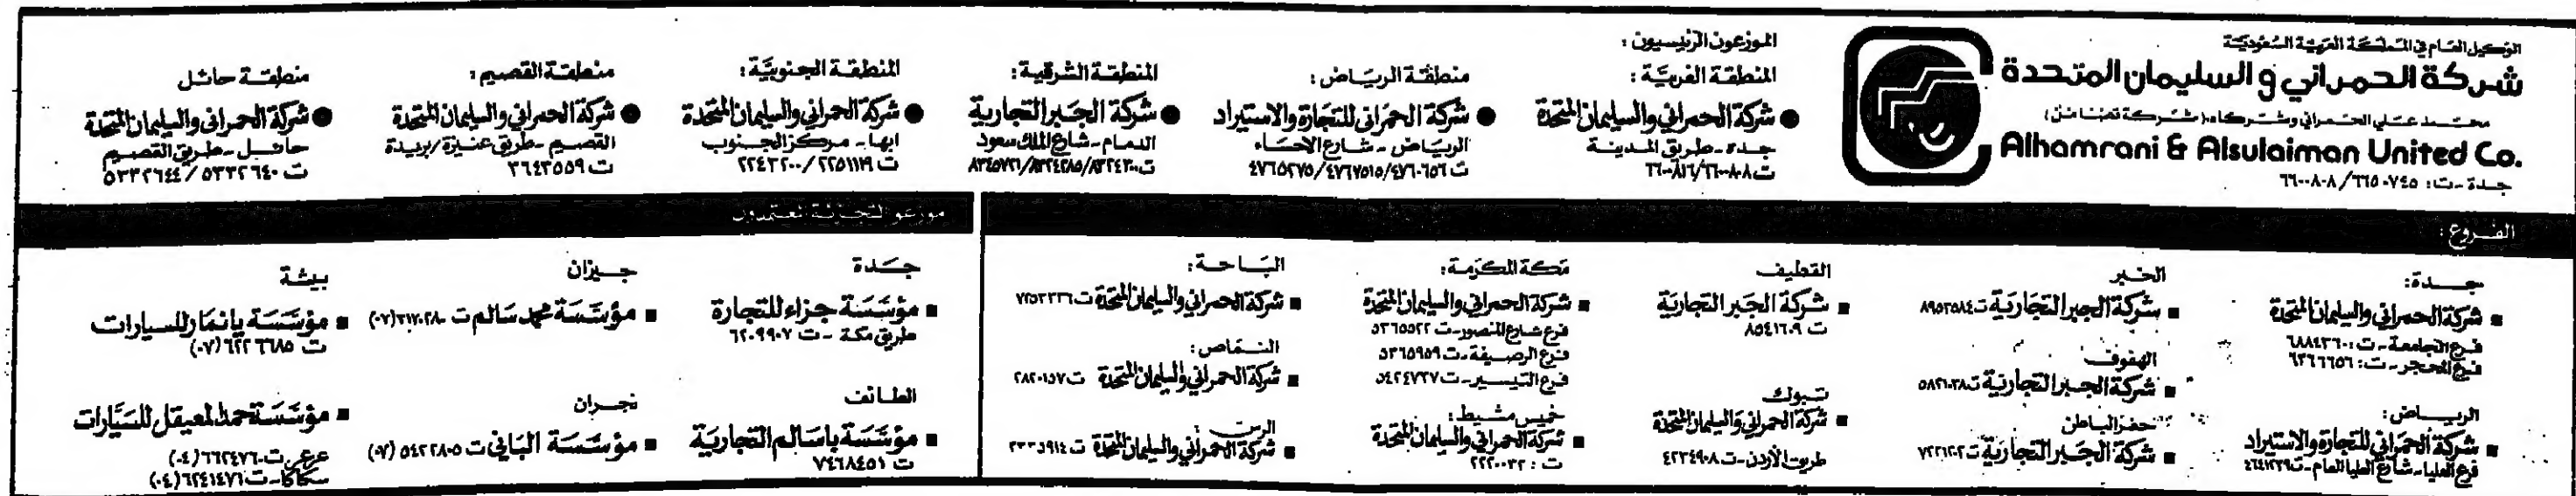 الوكيل العام في المملكة العربية السعودية
شركة الحمراني و السليمان المتحدة
محمد علي الحمراني وشركاه (شركة تضامن)
Alhamrani & Alsulaiman United Co.
جدة - ت: ٦٦٥٠٧٤٥ / ٦٦٠٠٨٠٨
الموزعون الرئيسيون:
المنطقة الغربية:
● شركة الحمراني والسليمان المتحدة
جدة - طريق المدينة
ت ٦٦٠٠٨٠٨/٦٦٠٠٨١٦
منطقة الرياض:
● شركة الحمراني للتجارة والاستيراد
الرياض - شارع الاحساء
ت ٤٧٦٠٦٥٦/٤٧٦٧٥١٥/٤٧٦٥٢٧٥
المنطقة الشرقية:
● شركة الجبر التجارية
الدمام - شارع الملك سعود
ت ٨٣٢٤٣٠٠/٨٣٢٤٢٨٥/٨٣٤٥٧٢١
المنطقة الجنوبية:
● شركة الحمراني والسليمان المتحدة
ابها - مركز الجنوب
ت ٢٢٥١١١٩ / ٢٢٤٣٢٠٠
منطقة القصيم:
● شركة الحمراني والسليمان المتحدة
القصيم - طريق عنيزة/بريدة
ت ٣٦٤٣٥٥٩
منطقة حائل
● شركة الحمراني والسليمان المتحدة
حائل - طريق القصيم
ت ٥٣٣٢٦٤٠ / ٥٣٣٢٦٤٤
الفروع:
جدة:
■ شركة الحمراني والسليمان المتحدة
فرع الجامعة - ت: ٦٨٨٤٣٦٠
فرع المحجر - ت: ٦٣٦٦٦٥٦
الرياض:
■ شركة الحمراني للتجارة والاستيراد
فرع العليا - شارع العليا العام - ت
الخبر
■ شركة الجبر التجارية ت ٨٩٥٣٥٨٤
الهفوف
■ شركة الجبر التجارية ت ٥٨٢١٠٣٨
حفر الباطن
■ شركة الجبر التجارية ت
القطيف
■ شركة الجبر التجارية
ت ٨٥٤١٦٠٩
تبوك
■ شركة الحمراني والسليمان المتحدة
طريق الأردن - ت ٤٢٣٤٩٠٨
مكة المكرمة:
■ شركة الحمراني والسليمان المتحدة
فرع شارع المنصور - ت ٥٣٦٥٥٢٢
فرع الرصيفة - ت ٥٣٦٥٩٥٩
فرع التيسير - ت ٥٤٢٤٧٢٧
خميس مشيط:
■ شركة الحمراني والسليمان المتحدة
ت: ٢٢٢٠٠٣٢
الباحة:
■ شركة الحمراني والسليمان المتحدة ت ٧٢٥٢٣٣٦
النماص:
■ شركة الحمراني والسليمان المتحدة ت ٢٨٢٠١٥٧
الرس:
■ شركة الحمراني والسليمان المتحدة ت ٣٣٣٥٩١٤
موزعو التجزئة المعتمدون
جدة
■ مؤسسة جزاء للتجارة
طريق مكة - ت ٦٢٠٩٩٠٧
الطائف
■ مؤسسة باسالم التجارية
ت ٧٤٦٨٤٥١
جيزان
■ مؤسسة محمد سالم ت ٣١٧٠٢٨٠ (٠٧)
نجران
■ مؤسسة الباني ت ٥٤٢٢٨٠٥ (٠٧)
بيشة
■ مؤسسة يانمار للسيارات
ت ٦٢٢٦٦٨٥ (٠٧)
■ مؤسسة حمد المعيقل للسيارات
عرعر ت ٦٦٢٤٧٦٠ (٠٤)
سكاكا - ت ٦٢٤١٤٧١ (٠٤)